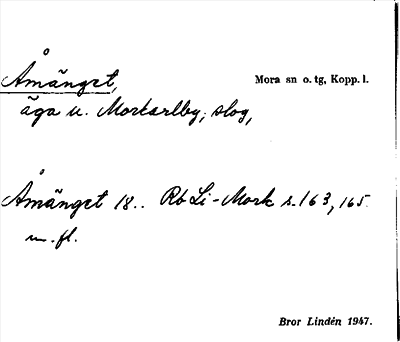 Åmänget, Mora sn o. tg, Kopp. l.
äga u. Morkarlby; slog,
Åmänget 18.. Rb Li-Mork s. 163, 165
m. fl.
Bror Lindén 1947.